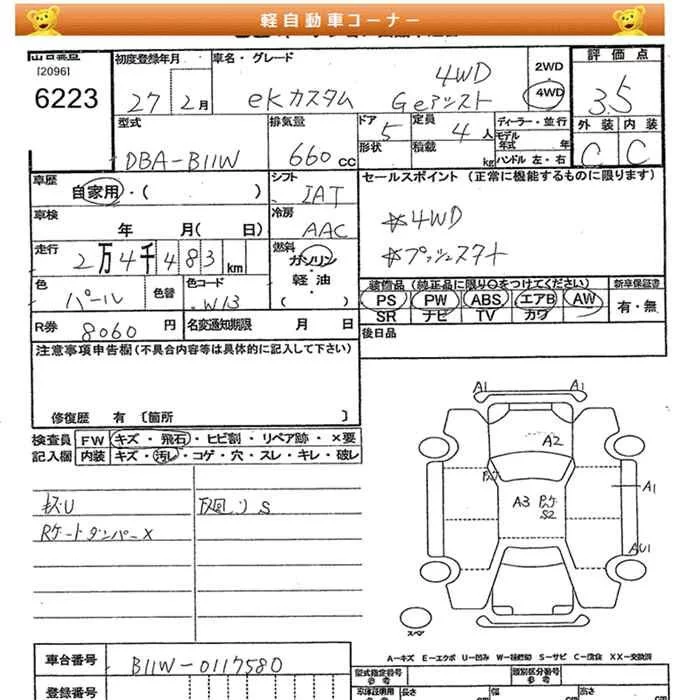 軽自動車コーナー
[2096]
6223
初度登録年月
27 2月
車名・グレード
4WD
eKカスタム Geアシスト
2WD
・
4WD
評価点
3.5
外装 内装
C C
型式
DBA-B11W
排気量
660 cc
ドア 5
形状
定員 4人
積載 kg
ディーラー・並行
モデル年式 年
ハンドル 左・右
車歴
自家用・( )
シフト
IAT
セールスポイント (正常に機能するものに限ります)
☆4WD
☆プッシュスタート
車検
年 月( 日)
冷房
AAC
走行
2万4千483km
燃料
ガソリン
・
軽油
・
( )
色
パール
色替
色コード
W13
装備品 (純正品に限り○をつけてください)
PS PW ABS エアB AW
SR ナビ TV カワ
新車保証書
有・無
R券 8060円
名変通知期限 月 日
後日品
注意事項申告欄(不具合内容等は具体的に記入して下さい)
修復歴 有 〔箇所 〕
検査員記入欄
FW キズ・飛石・ヒビ割・リペア跡・×要
内装 キズ・汚レ・コゲ・穴・スレ・キレ・破レ
キズU
下廻リS
Rゲートダンパー×
A1 A1
A2
A3
S2
A1
AU1
スペア
A―キズ E―エクボ U―凹み W―補修跡 S―サビ C―腐食 XX―交換済
車台番号
B11W-0117580
登録番号
型式指定番号
参考
類別区分番号
参考
車庫証明用
参考
長さ
幅
高さ